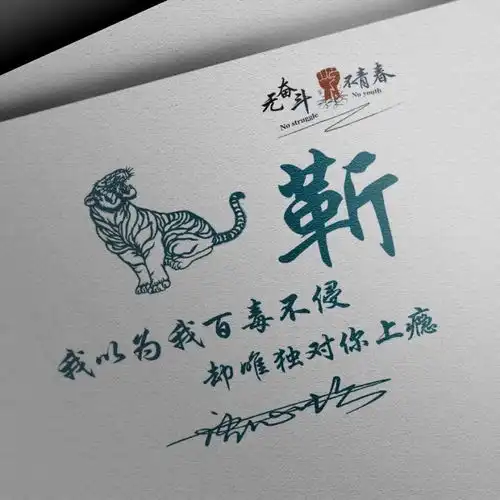 无奋斗 不青春
No struggle No youth
靳
我以为我百毒不侵
却唯独对你上瘾